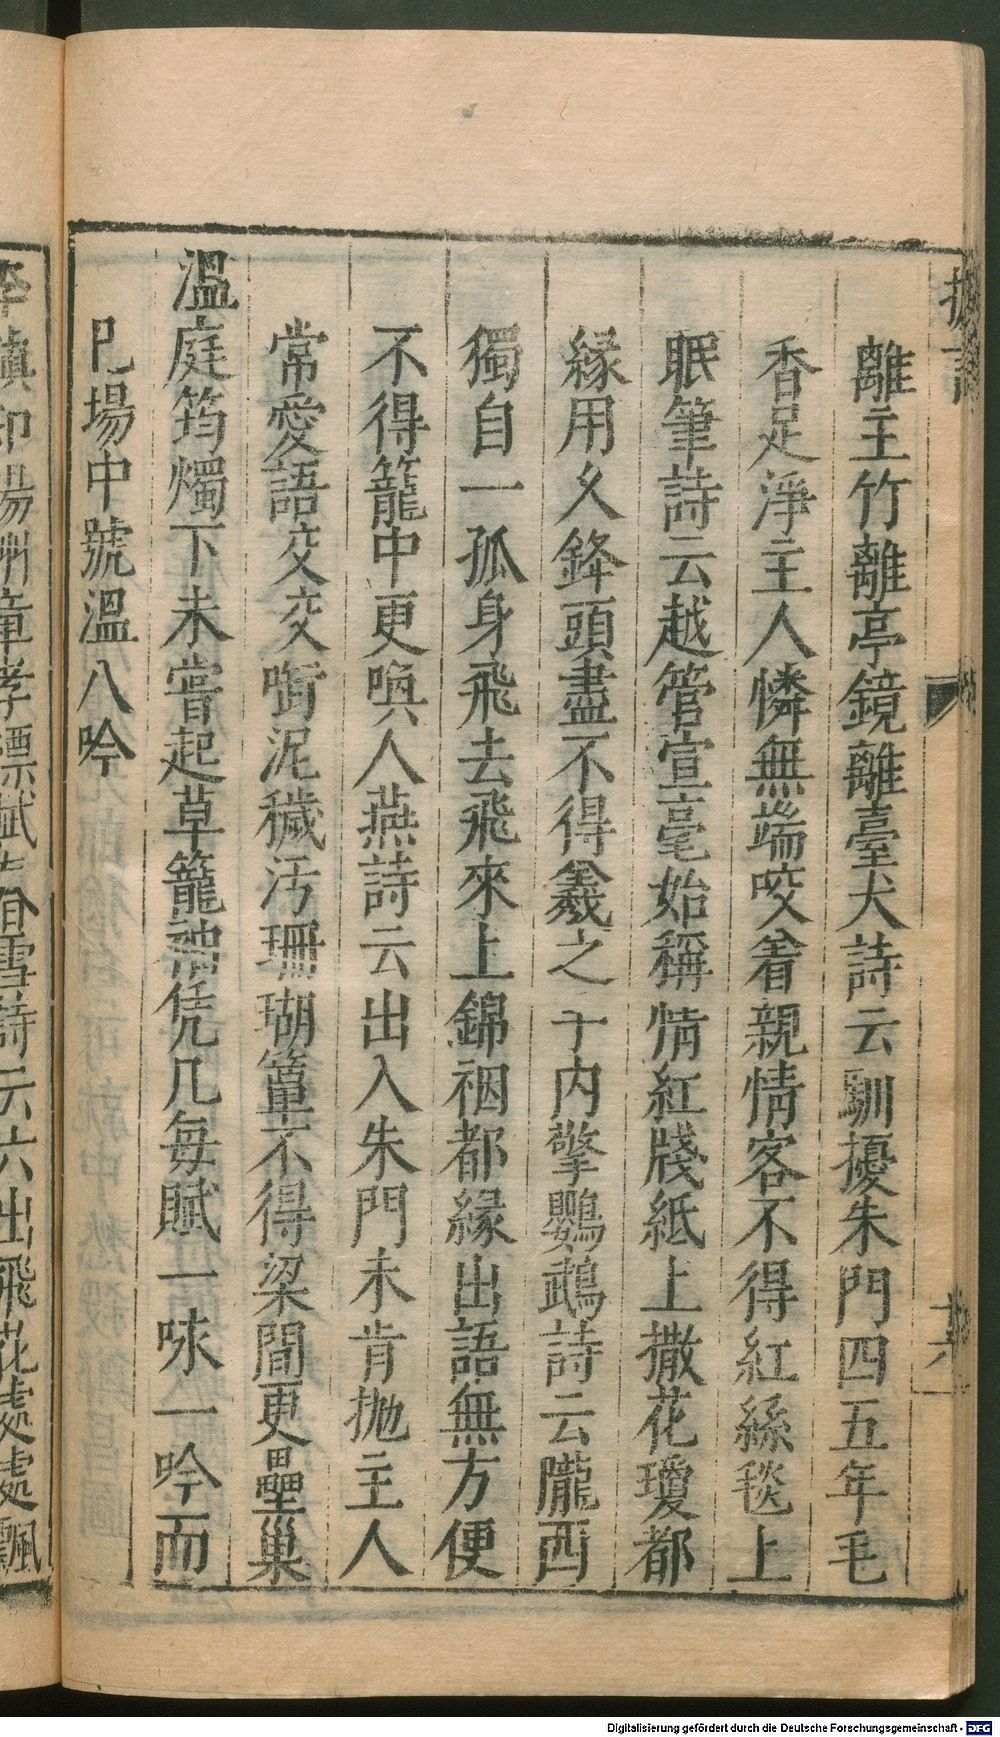 離主竹離亭鏡離臺犬詩云馴擾朱門四五年毛
香足淨主人憐無端咬着親情客不得紅絲毯上
眠筆詩云越管宣毫始稱情紅牋紙上撒花瓊都
縁用久鋒頭盡不得羲之手内擎鸚鵡詩云隴西
獨自一孤身飛去飛來上錦裀都縁出語無方便
不得籠中更喚人燕詩云出入朱門未肯抛主人
常愛語交交啣泥穢汚珊瑚簟不得梁間更壘巢
溫庭筠燭下未嘗起草籠袖凭几毎賦一咏一吟而
已場中號溫八吟
章孝標賦春雪詩云六出飛花處處飄
Digitalisierung gefördert durch die Deutsche Forschungsgemeinschaft - DFG